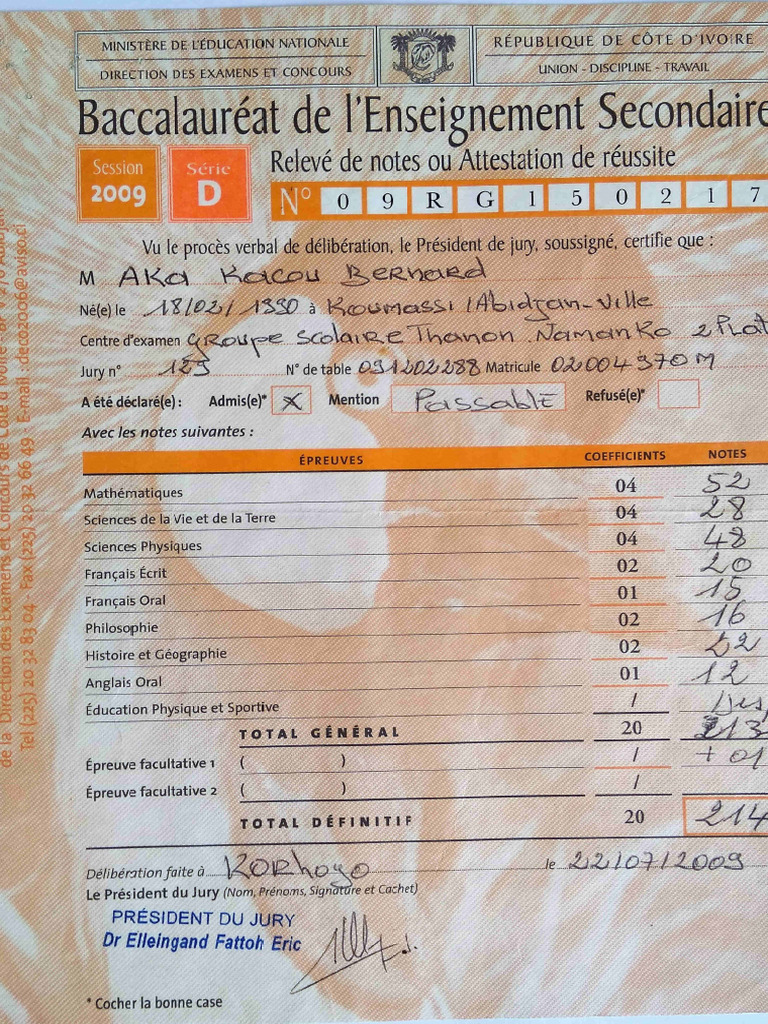 MINISTÈRE DE L'ÉDUCATION NATIONALE
DIRECTION DES EXAMENS ET CONCOURS
RÉPUBLIQUE DE CÔTE D'IVOIRE
UNION - DISCIPLINE - TRAVAIL
Baccalauréat de l'Enseignement Secondaire
Session 2009
Série D
Relevé de notes ou Attestation de réussite
N° 0 9 R G 1 5 0 2 1 7
Vu le procès verbal de délibération, le Président de jury, soussigné, certifie que :
M AKA KACOU BERNARD
Né(e) le 18/02/1990 à KOUMASSI/Abidjan-Ville
Centre d'examen GROUPE SCOLAIRE Thanon Namanko 2 Plat
Jury n° 129 N° de table 091202288 Matricule 02004970M
A été déclaré(e) : Admis(e)* X Mention PASSABLE Refusé(e)*
Avec les notes suivantes :
ÉPREUVES COEFFICIENTS NOTES
Mathématiques 04 52
Sciences de la Vie et de la Terre 04 28
Sciences Physiques 04 48
Français Écrit 02 20
Français Oral 01 15
Philosophie 02 16
Histoire et Géographie 02 22
Anglais Oral 01 12
Éducation Physique et Sportive /
TOTAL GÉNÉRAL 20 213
Épreuve facultative 1 ( ) / + 01
Épreuve facultative 2 ( ) /
TOTAL DÉFINITIF 20 214
Délibération faite à KORhogo le 22/07/2009
Le Président du Jury (Nom, Prénoms, Signature et Cachet)
PRÉSIDENT DU JURY
Dr Elleingand Fattoh Eric
* Cocher la bonne case
de la Direction des Examens et Concours de Côte d'Ivoire
Tel (225) 20 32 83 04 - Fax (225) 20 32 66 49 - E-mail : deco2006@aviso.ci